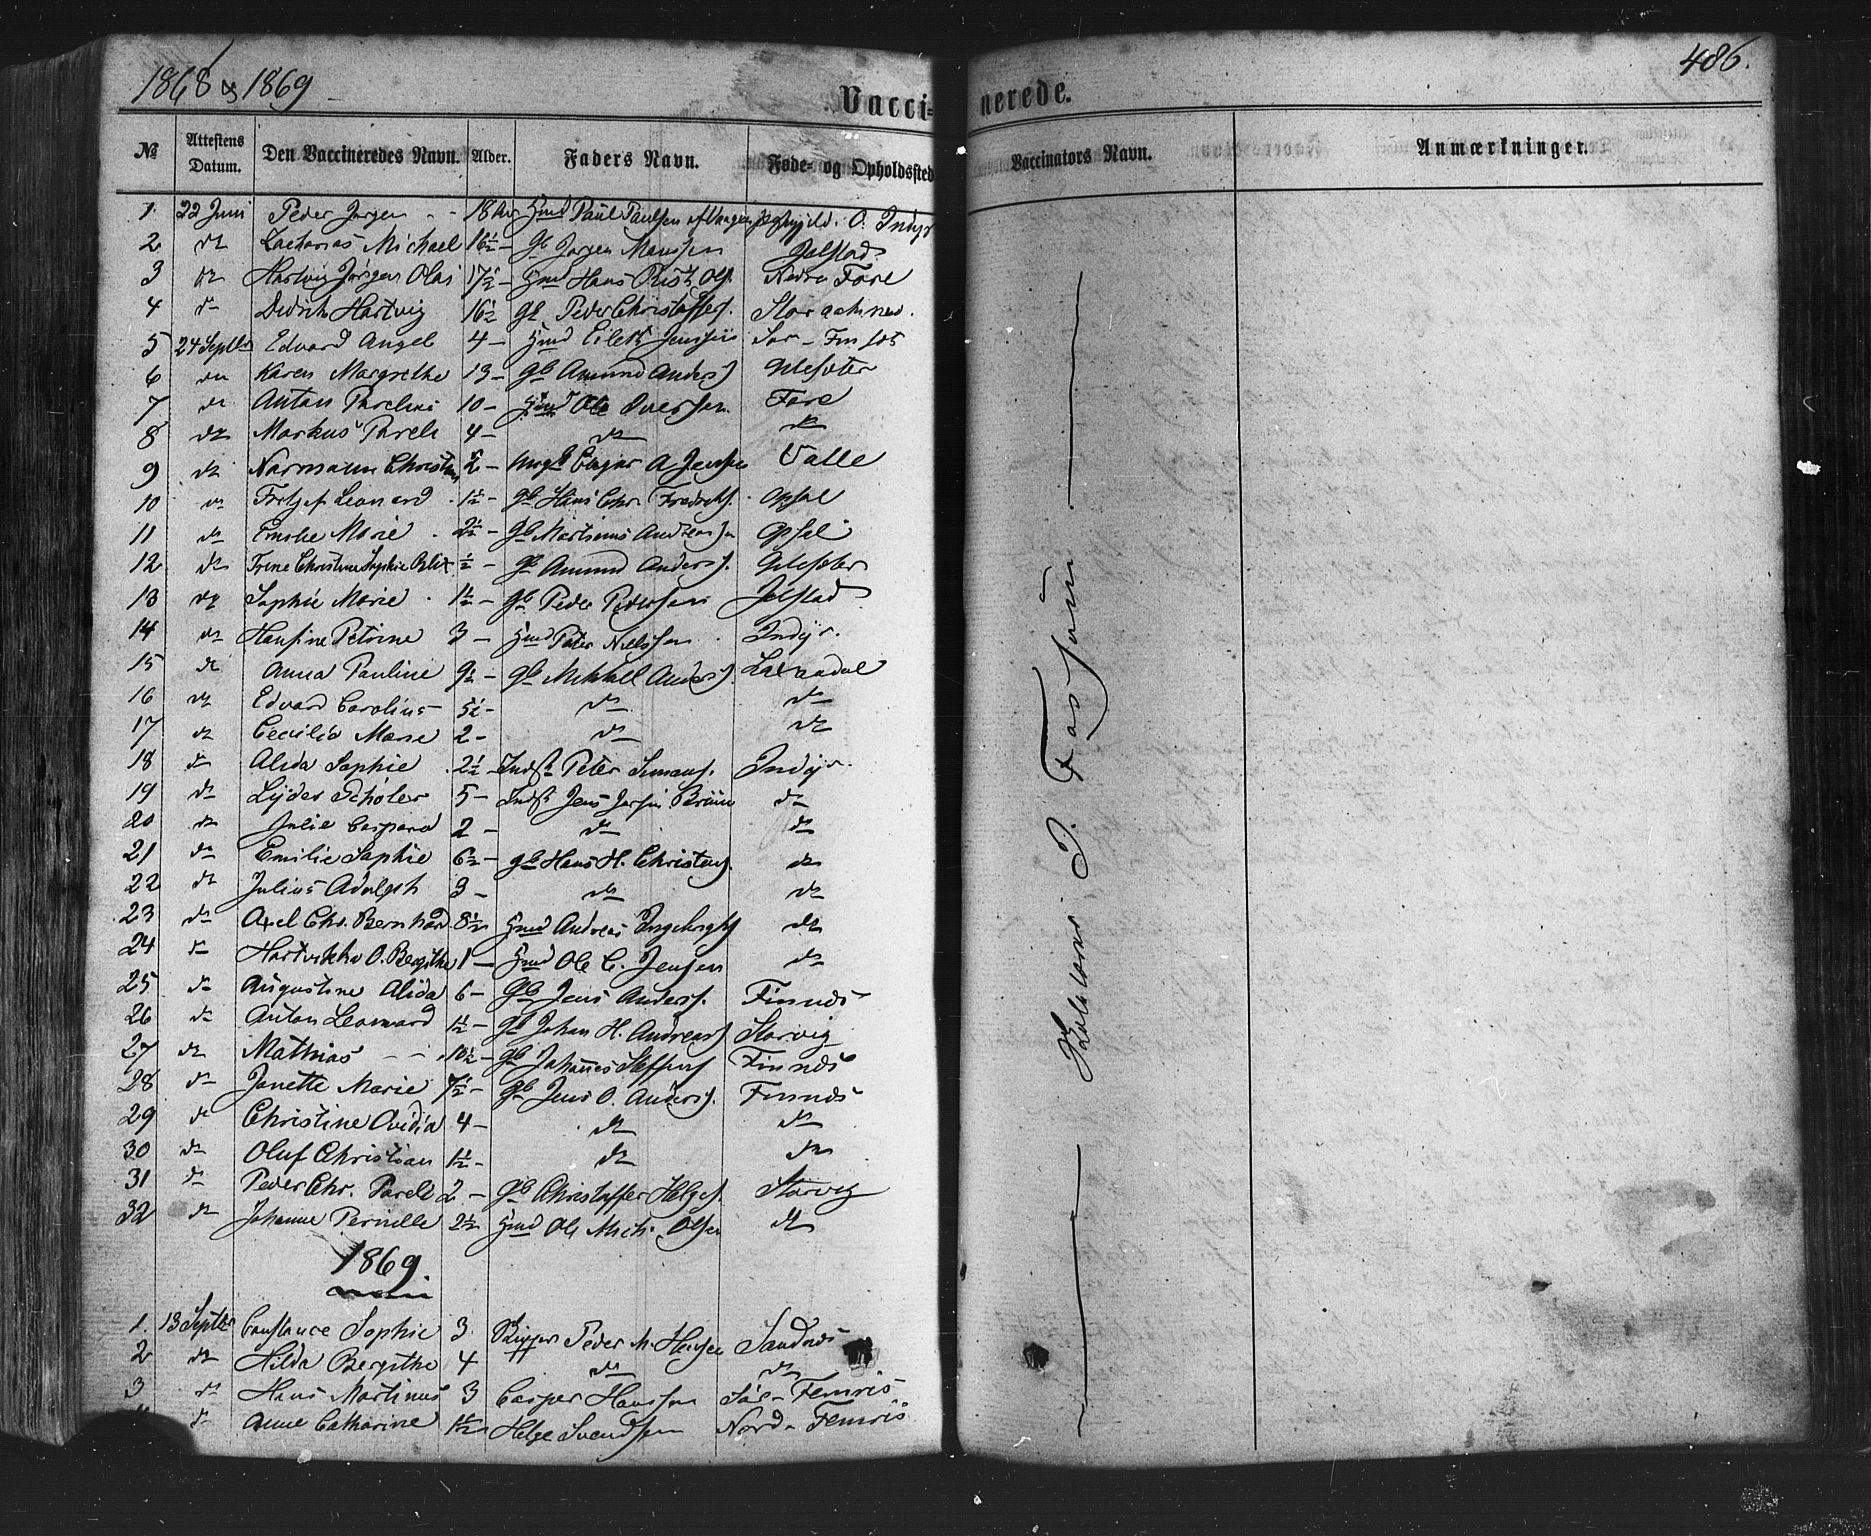 1868 & 1869
486.
Vaccinerede.
№ Attestens Datum. Den Vaccineredes Navn. Alder. Faders Navn. Føde- og Opholdssted Vaccinators Navn. Anmærkninger.
1. 22 Juni Peder Jørgen 18 Aar Hmd Paul Paulsen O. Indyr
2 do Zacharias Michael 16½ - Gb Jørgen Monssen Jelstad
3 do Hartvig Jørgen Olai 17½ - Hmd Hans Rist Ols. Nedre Fore
4 do Didrik Hartvig 16½ gb Peder Christoffers.
5 24 Septbr Edvard Angel 4 - Hmd Eilert Jenssen Sør-
6 do Karen Margrethe 13 - gb Amund Anders.
7 do Anton Parelius 10 - Hmd Ole Iversen Fore
8 do Markus Pareli 4 - do do
9 do Normann Christian 2 - A Jenssen Valle
10 do Fritjof Leonard 1½ - gb Hans Chr. Fredriks. Opsal
11 do Emilie Marie 2½ - gb Martinus Andreassen Opsal
12 do Trine Christine Sophie ½ - gb Amund Anders.
13 do Sophie Marie 1½ - gb Peder Pedersen Jelstad
14 do Hansine Petrine 3 - Hmd Peter Nilssen Indyr.
15 do Anna Pauline 9½ - gb Mikkel Anders.
16 do Edvard Carolius 5½ - do do
17 do Cecilia Marie 2 - do do
18 do Alida Sophie 2½ - Indst Peter Simons. Indyr.
19 do Lyder Schöler 5 - Indst Jens do
20 do Julie Caspara 2 - do do
21 do Emilie Sophie 6½ - gb Hans H. Christens. do
22 do Julius Adolph 3 - do do
23 do Axel Chr. Bernhard 8½ Hmd Andreas Ingebrigts do
24 do Hartvikka O. Bergithe 1 - Hmd Ole C. Jensen do
25 do Augustine Alida 6 - Gb Jens Anders. Finnæs
26 do Anton Leonard 1½ - gb Johan H. Andreas. Storvig
27 do Mathias 10½ - gb Johannes Steffens. Finnæs
28 do Janette Marie 7½ - gb Jens O. Anders. Finnæs
29 do Christine Ovidia 4 - do do
30 do Oluf Christian 1½ - do do
31 do Peder Chr. Pareli 2 - gb Christoffer Helges. Storvig
32 do Johanne Pernille 2½ Hmd Ole Mich. Olsen do
1869.
1. 13 Septbr Constance Sophie 3 Skipper Peder M. Sandnæs
2 do Hilda Bergithe 4 do do
3 do Hans Martinus 3 Casper Hanssen Sør- Femris
do Anne Catharine 1½ Helge Svendsen Nord- Femris
J. Fossum